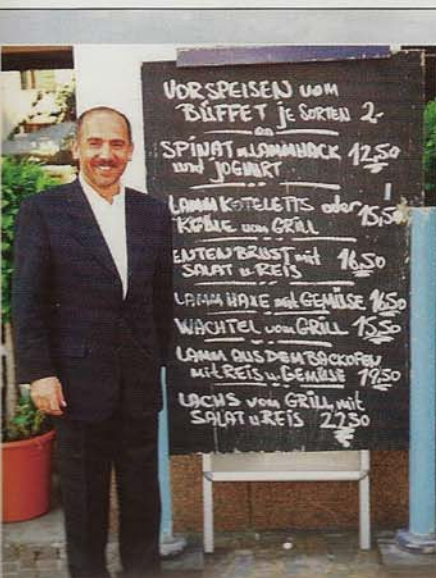 VORSPEISEN vom
BÜFFET je SORTEN 2,-
SPINAT m. LAMMHACK 12,50
und JOGHURT
LAMM KOTELETTS oder 15,50
KEULE vom GRILL
ENTENBRUST mit 16,50
SALAT u. REIS
LAMM HAXE mit GEMÜSE 16,50
WACHTEL vom GRILL 15,50
LAMM AUS DEM BACKOFEN
mit REIS u. GEMÜSE 19,50
LACHS vom GRILL mit
SALAT u. REIS 22,50